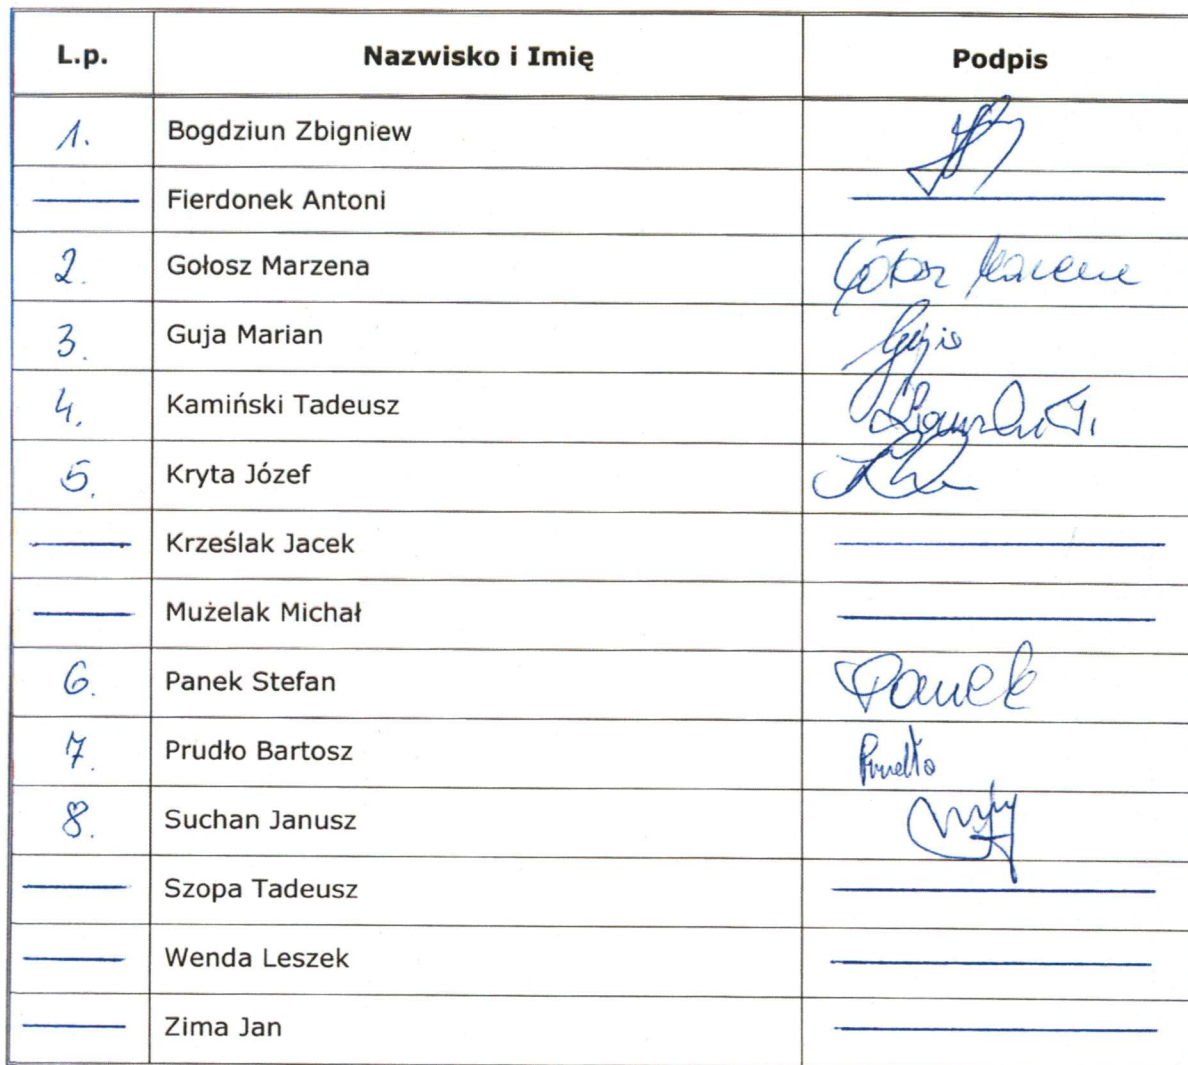 L.p. Nazwisko i Imię Podpis
1. Bogdziun Zbigniew
Fierdonek Antoni
2. Gołosz Marzena
3. Guja Marian
4. Kamiński Tadeusz
5. Kryta Józef
Krześlak Jacek
Mużelak Michał
6. Panek Stefan Panek
7. Prudło Bartosz Prudło
8. Suchan Janusz
Szopa Tadeusz
Wenda Leszek
Zima Jan